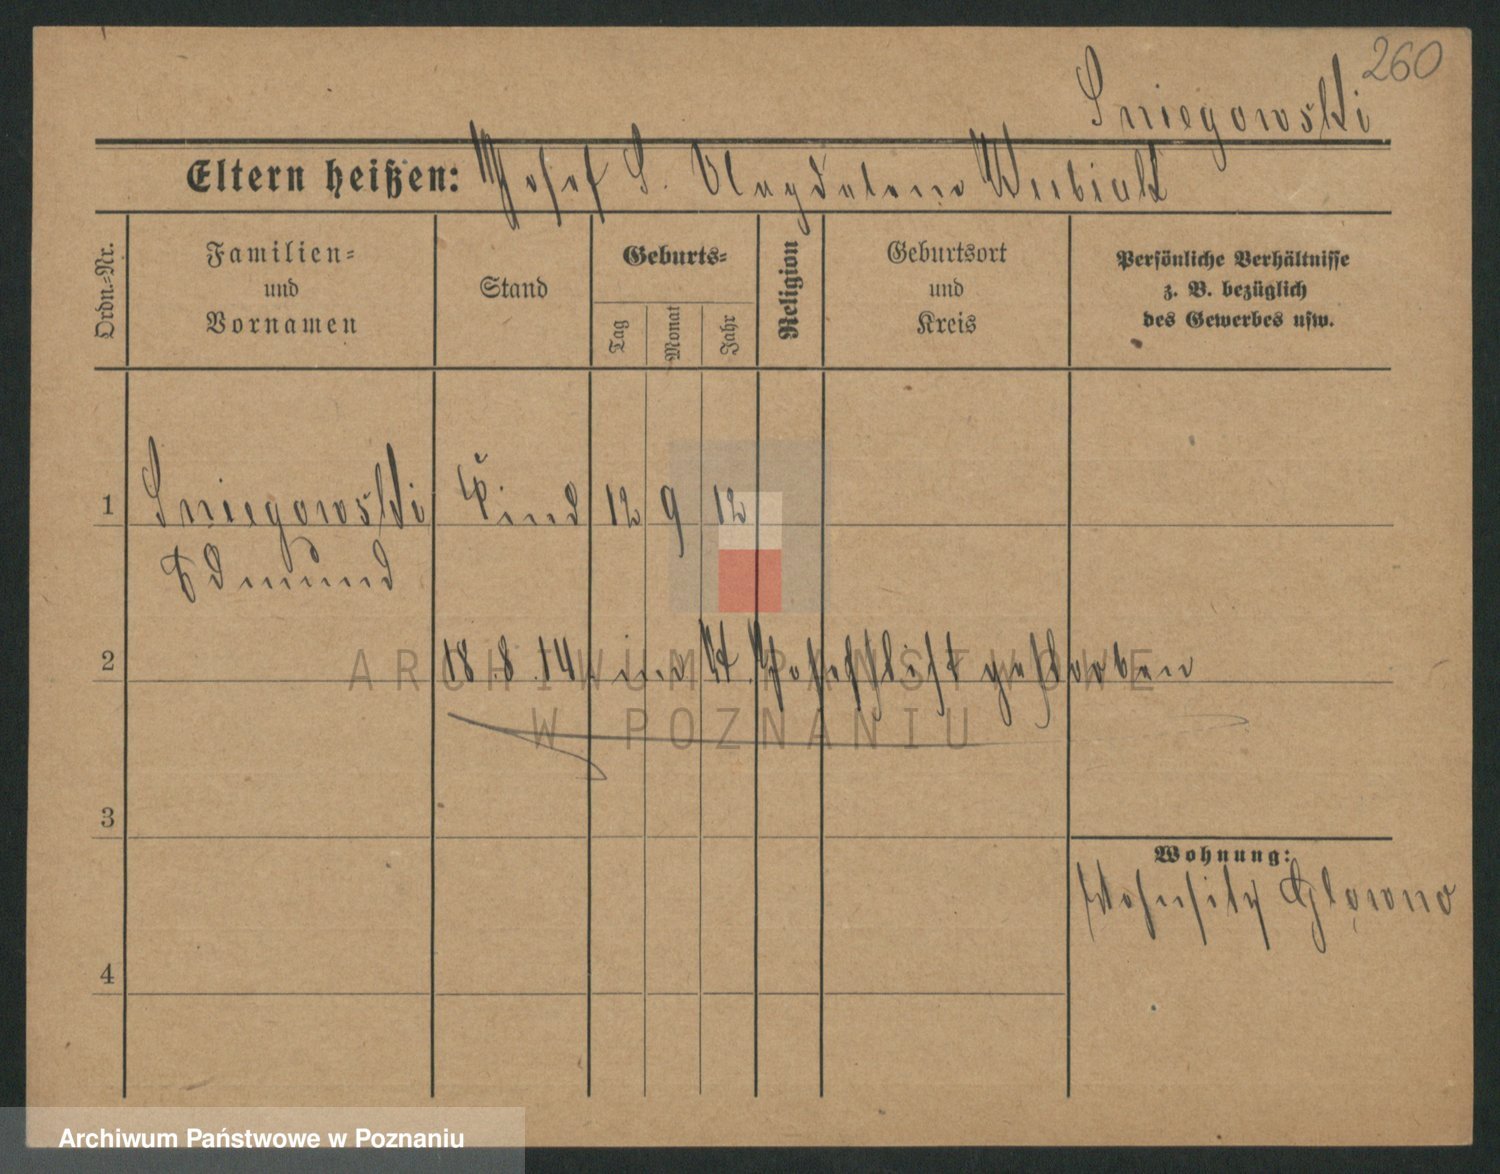 260
Sniegowski
Eltern heißen: Josef S. Magdalena Wubiak
Ordn.-Nr.
Familien-
und
Vornamen
Stand
Geburts-
Tag
Monat
Jahr
Religion
Geburtsort
und
Kreis
Persönliche Verhältnisse
z. B. bezüglich
des Gewerbes usw.
1 Sniegowski Kind 12 9 12
Edmund
2 18.8.14. ind St. Josefstift gestorben
3
4
Wohnung:
Wohnsitz Glowno
ARCHIWUM PAŃSTWOWE
W POZNANIU
Archiwum Państwowe w Poznaniu